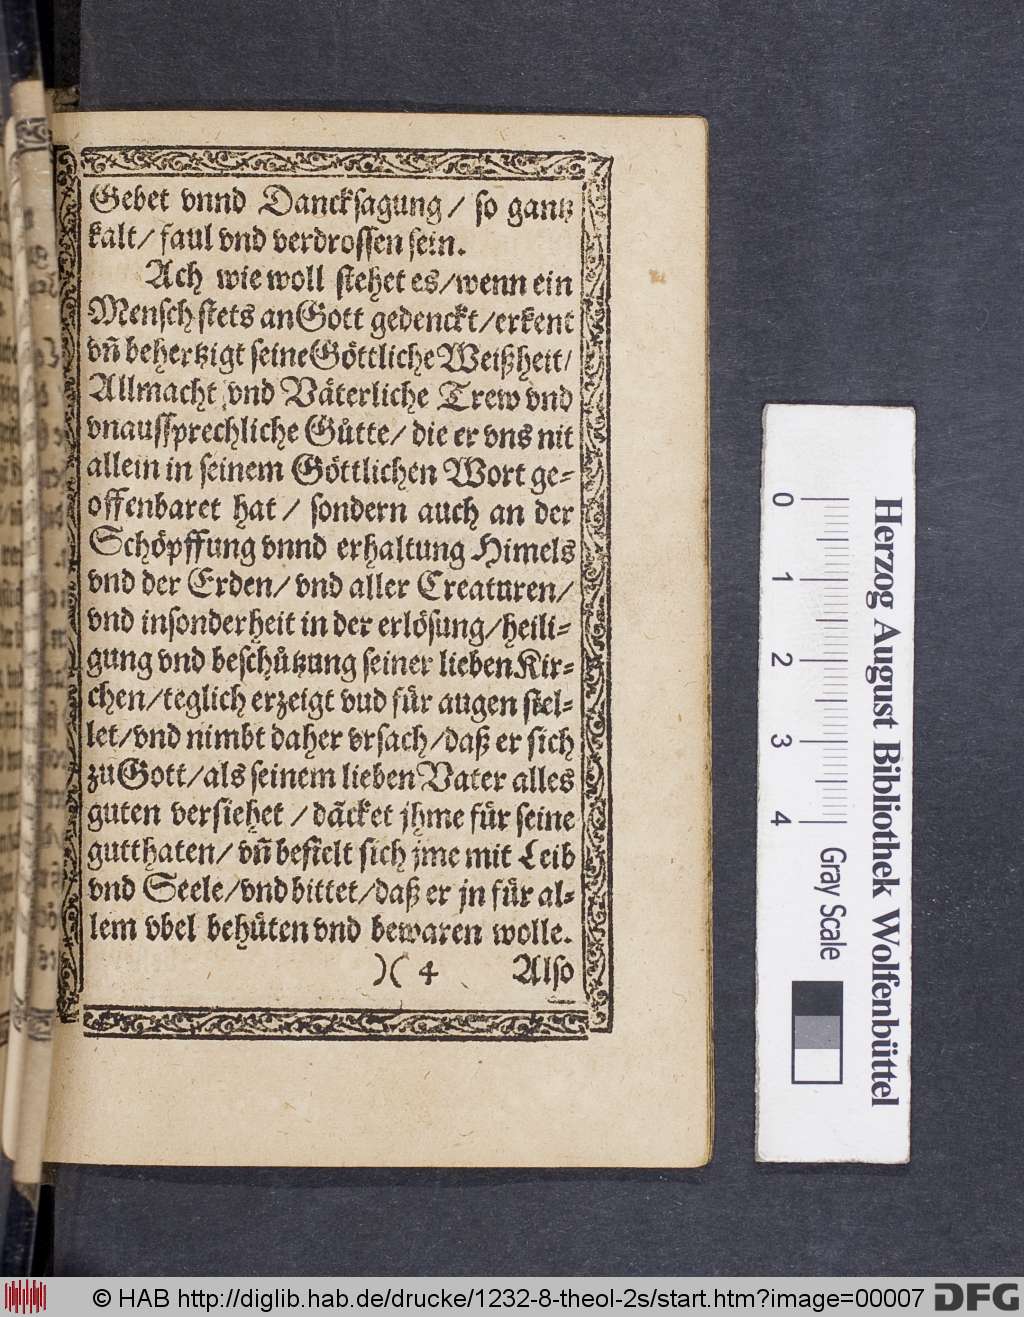 Gebet vnnd Dancksagung / so gantz
kalt / faul vnd verdrossen sein.
Ach wie woll stehet es / wenn ein
Mensch stets an Gott gedenckt / erkent
vñ behertzigt seine Göttliche Weißheit /
Allmacht vnd Väterliche Trew vnd
vnaussprechliche Gütte / die er vns nit
allein in seinem Göttlichen Wort ge-
offenbaret hat / sondern auch an der
Schöpffung vnnd erhaltung Himels
vnd der Erden / vnd aller Creaturen /
vnd insonderheit in der erlösung / heili-
gung vnd beschützung seiner lieben Kir-
chen / teglich erzeigt vud für augen stel-
let / vnd nimbt daher vrsach / daß er sich
zu Gott / als seinem lieben Vater alles
guten versiehet / dācket jhme für seine
gutthaten / vñ befielt sich jme mit Leib
vnd Seele / vnd bittet / daß er jn für al-
lem vbel behüten vnd bewaren wolle.
)( 4 Also
Herzog August Bibliothek Wolfenbüttel
0 1 2 3 4 Gray Scale
© HAB http://diglib.hab.de/drucke/1232-8-theol-2s/start.htm?image=00007 DFG